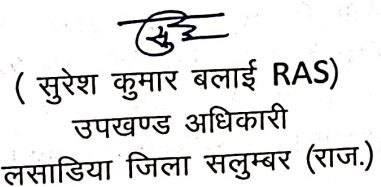 ( सुरेश कुमार बलाई RAS)
उपखण्ड अधिकारी
लसाडिया जिला सलुम्बर (राज.)